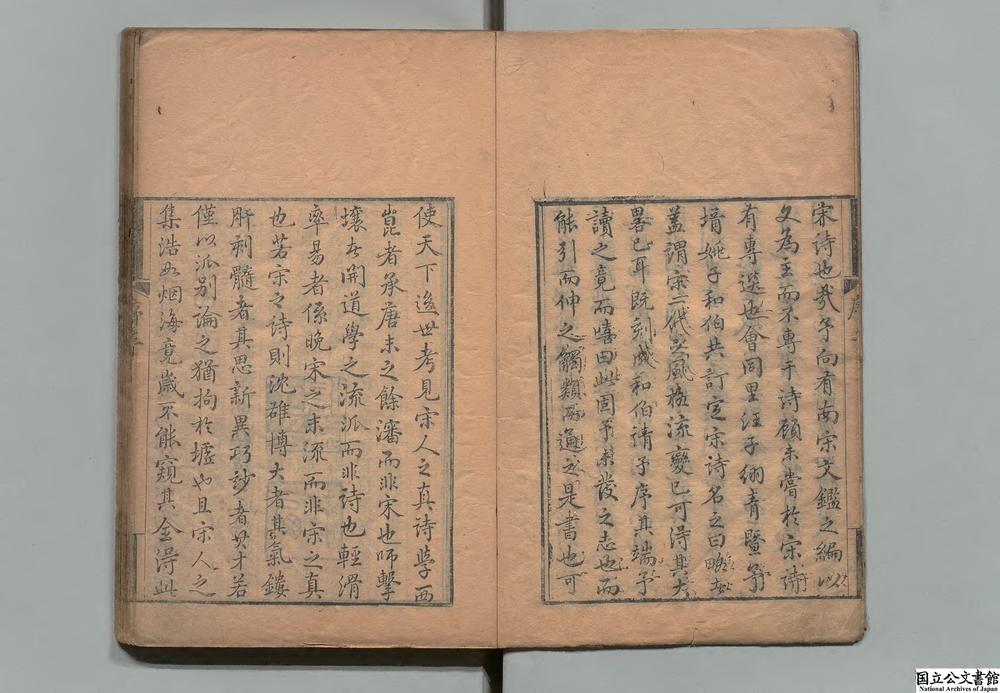 宋詩也哉予向有南宋文鑑之編以
文為主而不專于詩顧未嘗於宋詩
有專選也會同里汪子绸青暨予
壻姚子和伯共訂定宋詩名之曰略
蓋謂宋一代之風格流變已可得其大
畧已耳既刻成和伯請予序其端予
讀之竟而嘻曰此固予未發之志也而
能引而伸之觸類而通之是書也可
使天下後世考見宋人之真詩學西
崑者承唐末之餘瀋而非宋也師擊
壤者開道學之流派而非詩也輕滑
率易者係晚宋之末流而非宋之真
也若宋之詩則沈雄博大者其氣鏤
肝刺髓者其思新異巧妙者其才若
僅以派别論之猶拘於墟也且宋人之
集浩如烟海竟歲不能窺其全得此
国立公文書館
National Archives of Japan